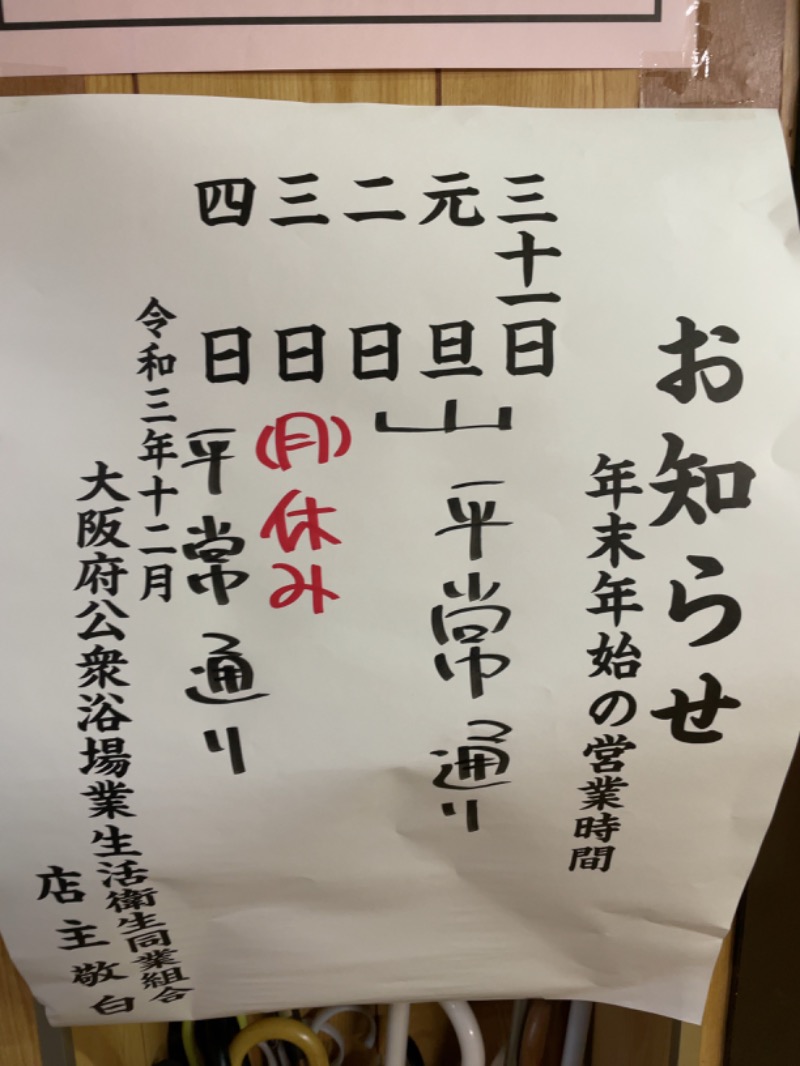 お知らせ
年末年始の営業時間
三十一日
元旦
二日
平常通り
三日(月)休み
四日平常通り
令和三年十二月
大阪府公衆浴場業生活衛生同業組合
店主敬白